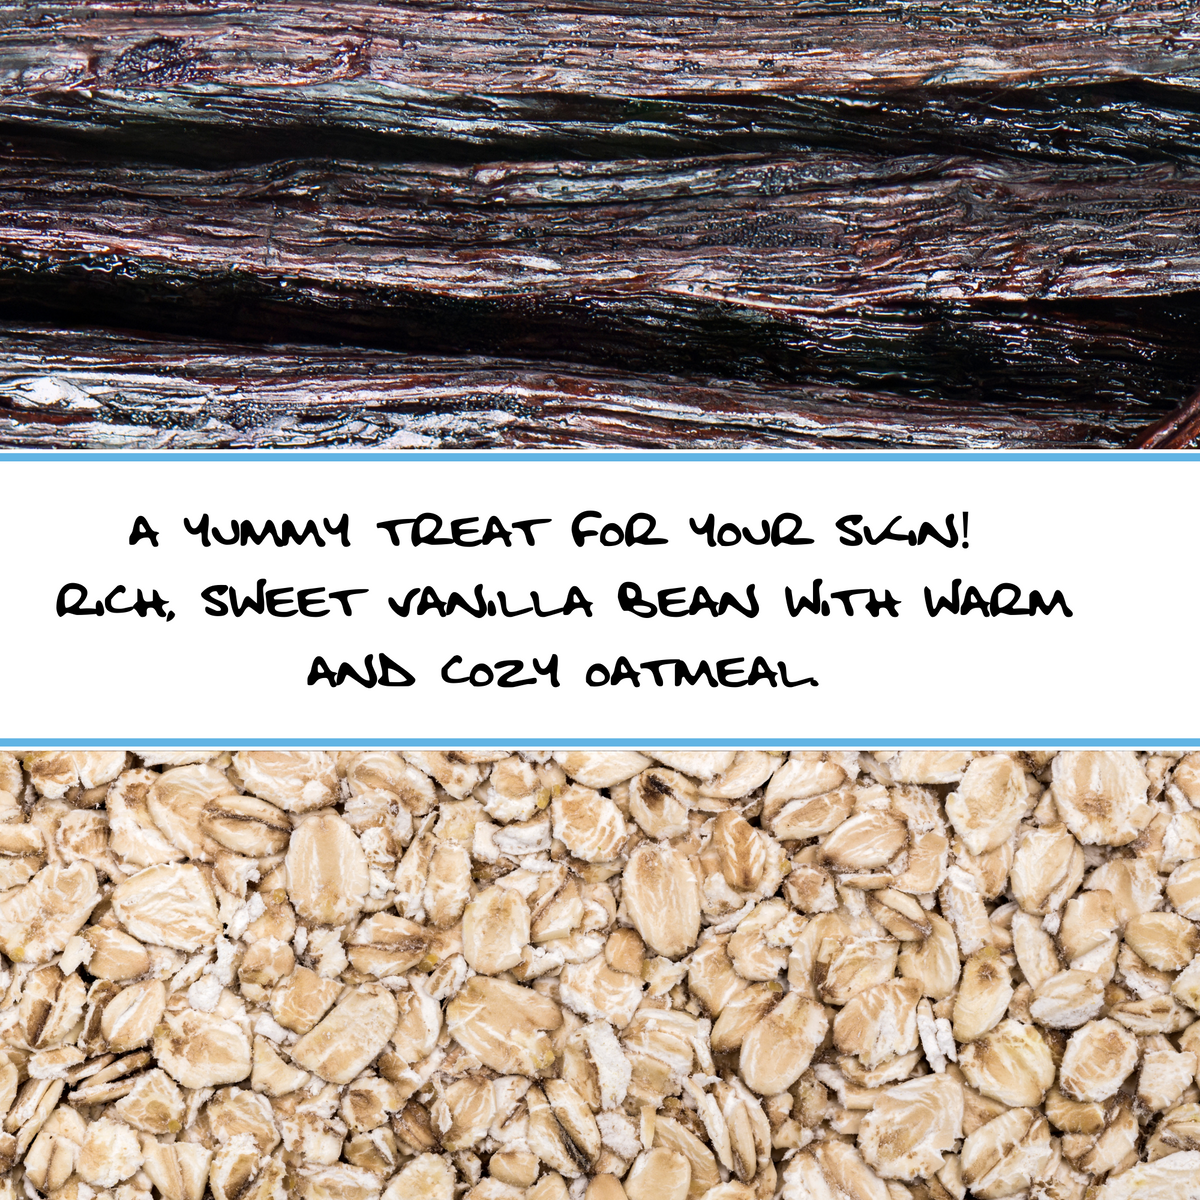 A YUMMY TREAT FOR YOUR SKIN!
RICH, SWEET VANILLA BEAN WITH WARM
AND COZY OATMEAL.